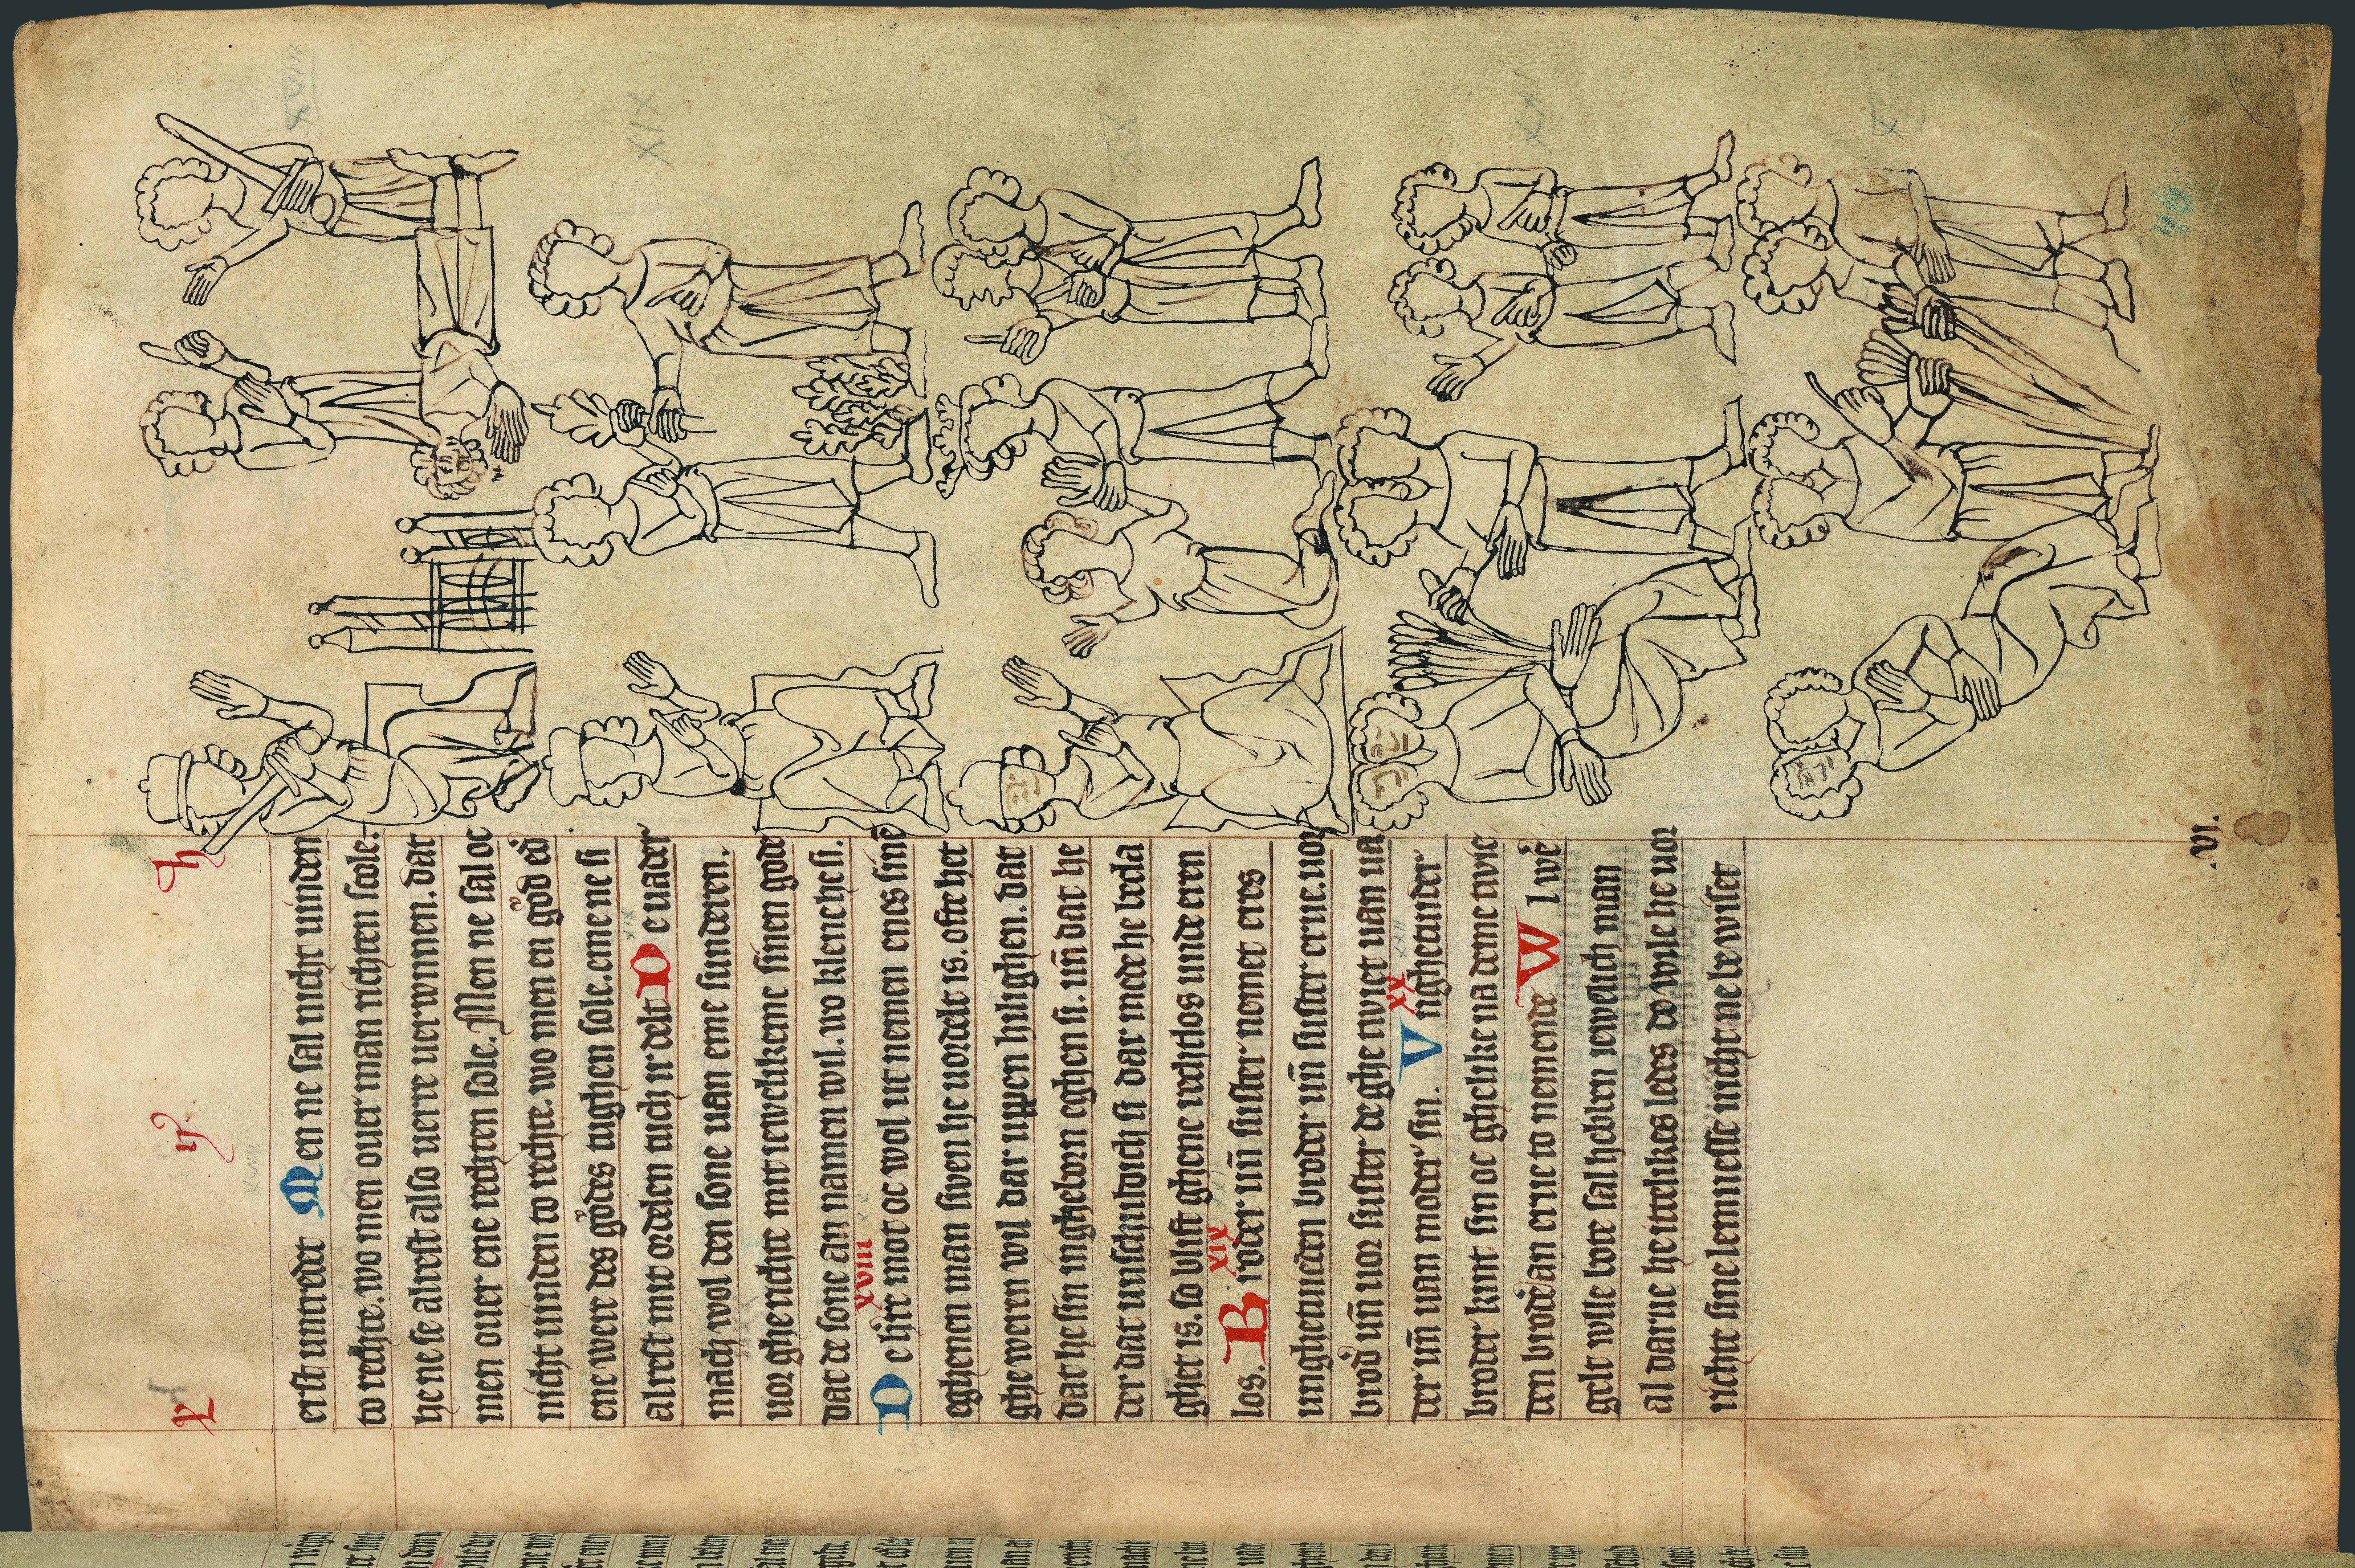 X ij h
erst untredet Men ne sal nicht uinden
to rechte. wo men ouer man richten scole.
he ne se alrest also uerre uerwnnen. dat
men ouer ene rechten sole. Men ne sal oc
nicht uinden to rechte. wo men en god ed'
ene were des godes tughen sole. eme ne si
alrest mit ordelen tuch irdelt De uader
mach wol den sone uan eme sunderen.
uor gherichte mit iewelikeme sinen gode
dat de sone an namen wil. wo klene he si.
xviii
De here mot oc wol ut nemen enes sinē
eghenen man swen he uordelt is. ofte het
ghe weren wil dar uppen hilighen. dat
dat he sin ingheborn eghen si. un̄ dat he
der dat unschuldich si dar mede he becla
ghet is. so blift ghene rechtlos unde eren
xix
los. Broder un̄ suster nemet eres
unghetueden broder un̄ suster erue. uor
brod' un̄ uor suster de ghe twiet uan ua
xx
der un̄ uan moder sin. Vngheander
broder kint sin oc ghelike na deme twie
den brode' an erue to nemende Wl we'
gelt wlle bote sal hebben iewelich man
al darue he ittelikes ledes do wile he uor
richte sine lemnesse nicht ne be wiset
XIX
XX
XXI
.vi.